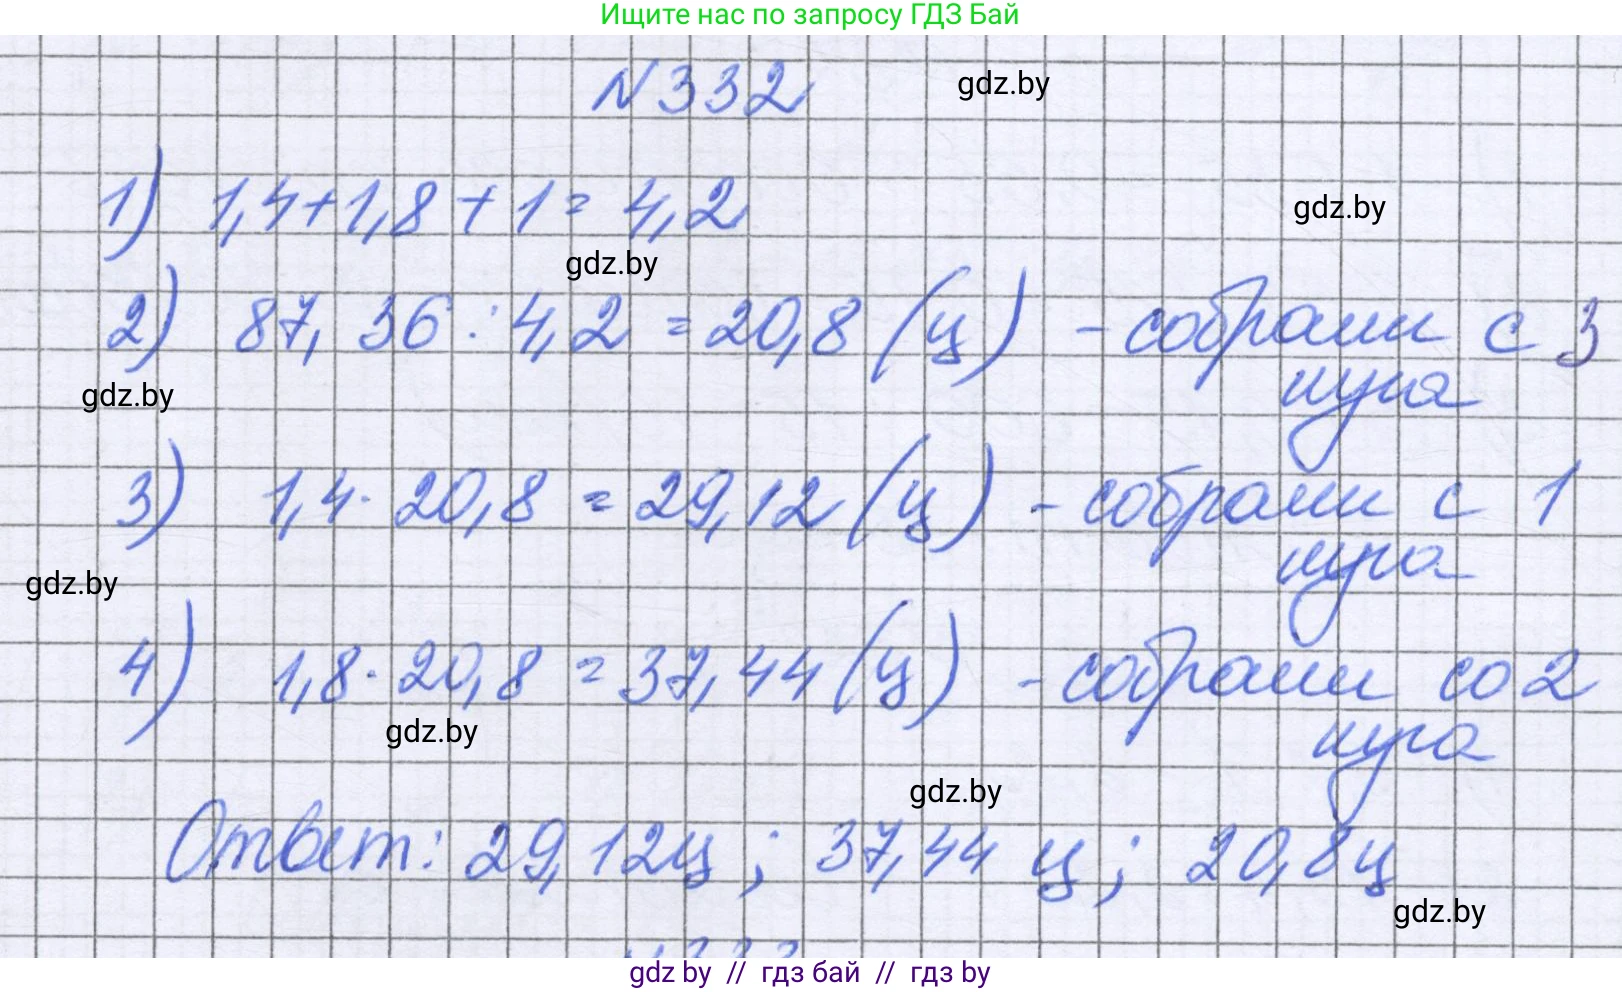 Ищите нас по запросу ГДЗ Бай
N332
gdz.by
1) 1,4+1,8 + 1 = 4,2
gdz.by
gdz.by
2) 87,36 : 4,2 = 20,8 (ц) - собрали с 3
луга
gdz.by
3) 1,4 · 20,8 = 29,12 (ц) - собрали с 1
луга
gdz.by
4) 1,8 · 20,8 = 37,44 (ц) - собрали со 2
луга
gdz.by
gdz.by
Ответ: 29,12ц ; 37,44 ц ; 20,8ц
gdz.by
gdz by // гдз бай // гдз by